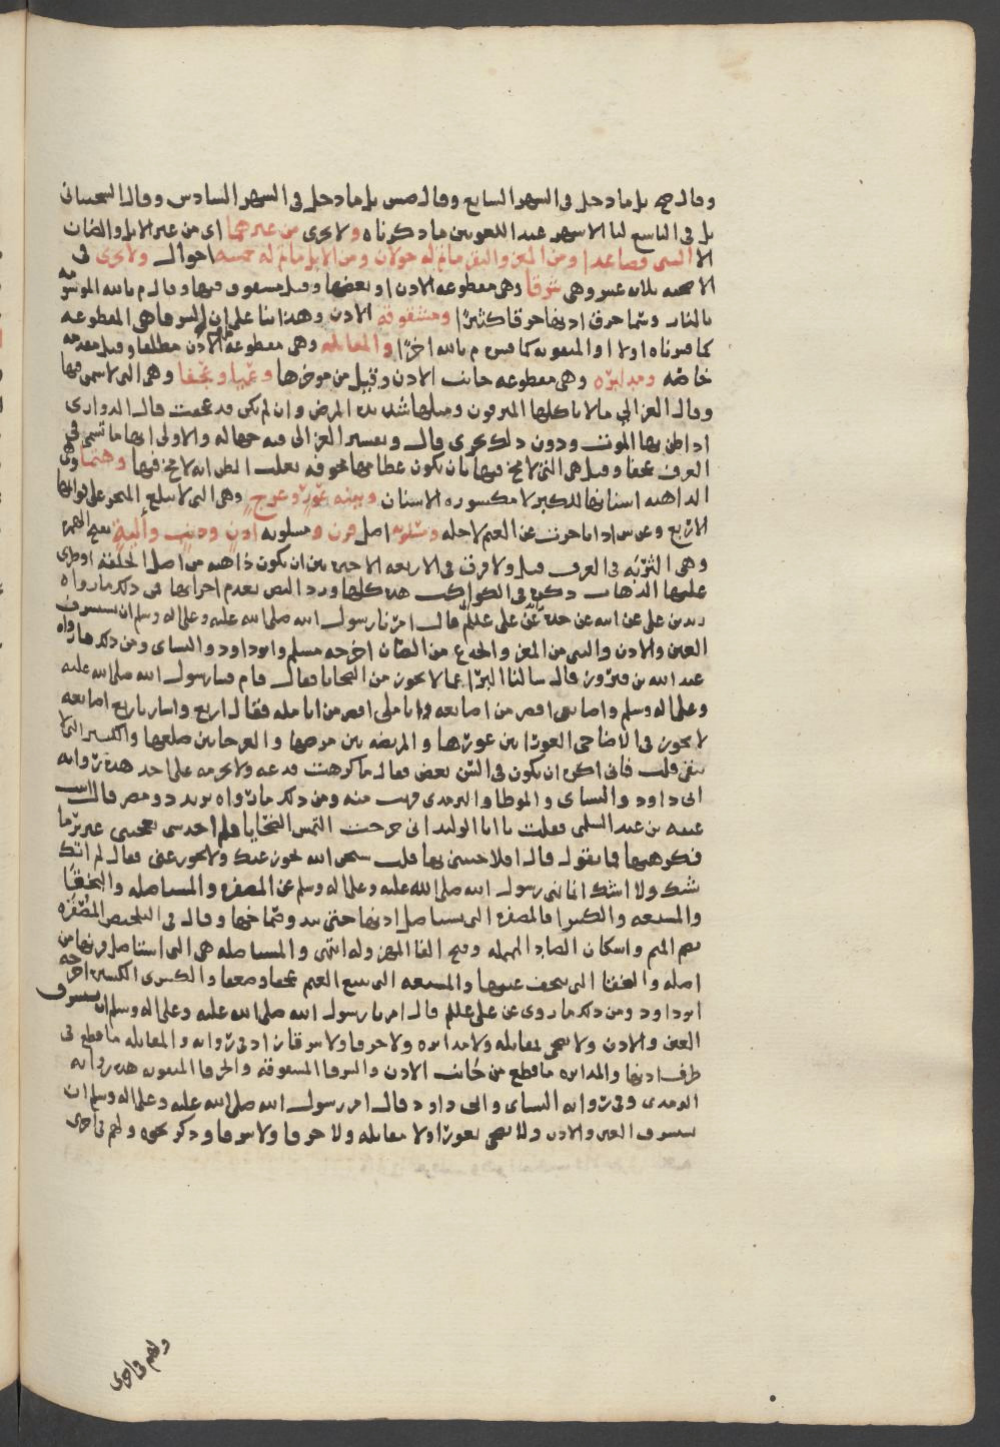 وقال ح بل ما دخل في الشهر السابع وقال ص بل ما دخل في الشهر السادس وقال السحيتاني
بل في التاسع لنا الاشهر عند اللغويين ما ذكرناه ولا يجزي من غيرهما اي من غير الابل والضان
الا الثني فصاعدا ومن المعز والبقر ما تم له حولان ومن الابل ما تم له خمسة احوال ولا يجزي في
الاضحية ثلاثة عشر وهي شرقا وهي مقطوعة الاذن او بعضها وقيل مشقوق فيها وقال م بالله الموسومة
بالنار وخرقا اذنها خرقا كثيرا ومثقوبة الاذن وهذا بنا على ان الشرقا هي المقطوعة
كما فسرناه اولا او المثقوبة كما فسر م بالله اخرا والمقابلة وهي مقطوعة الاذن مطلقا وقيل مقدمه
خاصة ومدابرة وهي مقطوعة جانب الاذن وقيل من موخرها وعميا وعجفا وهي التي لا سمن فيها
وقال الغزالي ما لا ياكلها المترفون ومثلها شديدة المرض وان لم تكن قد عجفت قال الدواري
اذا ظن بها الموت ودون ذلك يجزي قال وتفسير الغزالي فيه جهالة والاولى انها ما تسمى في
العرف عجفا وقيل هي التي لا مخ فيها بان يكون عظامها مجوفة يغلب الظن انه لا مخ فيها وهتما وهي
الذاهبة اسنانها للكبر لا مكسورة الاسنان وبينة عور وعرج وهي التي لا تبلغ المنحر على قوائمها
الاربع وعن س اذا تاخرت عن الغنم لاجله ومسلوبة اصل قرن ومسلوبة اذن وذنب وألية بفتح الهمزة
وهي الثربة في العرف قيل ولا فرق في الاربعة الاخيرة بين ان يكون ذاهبة من اصل الخلقة او طرى
عليها الذهاب ذكره في الكواكب هذه كلها ورد النص بعدم اجزائها فمن ذلك ما رواه
زيد بن علي عن ابيه عن جده عن علي علي&#1600;لم قال امرنا رسول الله صلى الله عليه وعلى اله وسلم ان نستشرف
العين والاذن والثني من المعز والجذع من الضان اخرجه مسلم وابو داود والنساي ومن ذلك ما رواه
عبد الله بن فيروز قال سالنا البرا عما لا يجوز من الضحايا فقال قام فينا رسول الله صلى الله عليه
وعلى اله وسلم واصابعي اقصر من اصابعه واناملي اقصر من انامله فقال اربع واشار باربع اصابعه
لا يجوز في الاضاحي العورا بين عورها والمريضة بين مرضها والعرجا بين ضلعها والكسير التي لا
تنقى قلت فاني اكره ان يكون في السن نقص فقال ما كرهت فدعه ولا تحرمه على احد هذه رواية
ابي داود والنساي والموطا والترمذي قريب منه ومن ذلك ما رواه يزيد ذو مصر قال اتيت
عتبة بن عبد السلمي فقلت يا ابا الوليد اني خرجت التمس الضحايا فلم اجد شيئا يعجبني غير ثرما
فكرهتها فما تقول قال افلا جئتني بها قلت سبحان الله تجوز عنك ولا تجوز عني فقال نعم انك
تشك ولا اشك انما نهى رسول الله صلى الله عليه وعلى اله وسلم عن المصفرة والمستاصلة والبخقا
والمشيعة والكسرا فالمصفرة التي تستاصل اذنها حتى يبدو صماخها وقال في التلخيص المصفرة
بضم الميم واسكان الصاد المهملة وفتح الفا المهزولة انتهى والمستاصلة هي التي استاصل قرنها من
اصله والبخقا التي تبخق عينها والمشيعة التي تتبع الغنم عجفا وضعفا والكسرى الكسيرة اخرجه
ابو داود ومن ذلك ما روي عن علي علي&#1600;لم قال امرنا رسول الله صلى الله عليه وعلى اله وسلم ان نستشرف
العين والاذن ولا نضحي بمقابلة ولا مدابرة ولا خرقا ولا شرقا زاد في رواية والمقابلة ما قطع في
طرف اذنها والمدابرة ما قطع من جانب الاذن والشرقا المشقوقة والخرقا المثقوبة هذه رواية
الترمذي وفي رواية النساي وابي داود قال امر رسول الله صلى الله عليه وعلى اله وسلم ان
نستشرف العين والاذن ولا نضحي بعورا ولا مقابلة ولا خرقا ولا شرقا وذكر نحوه ولهم في اخرى
ولهم في اخرى